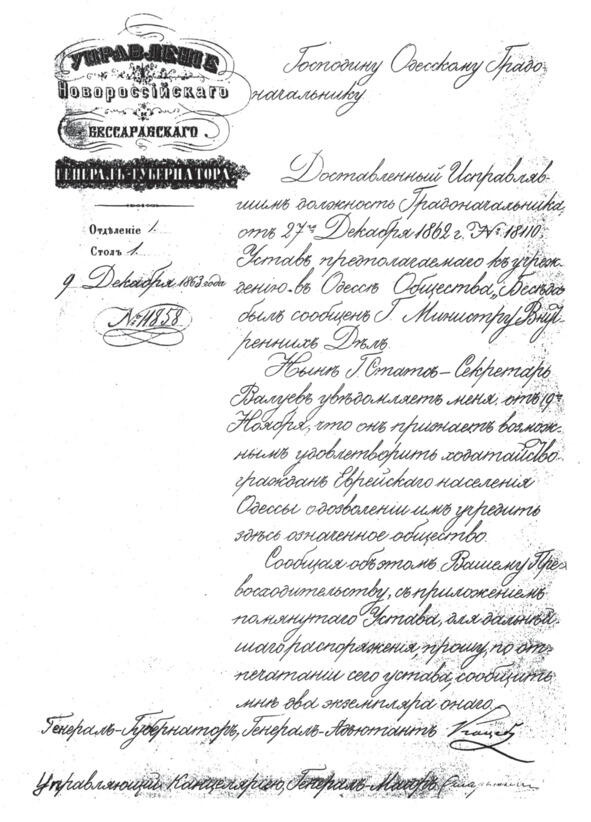 УПРАВЛЕНІЕ
Новороссійскаго
и
БЕССАРАБСКАГО
ГЕНЕРАЛЪ-ГУБЕРНАТОРА
Отдѣленіе 1.
Столъ 1.
9 Декабря 1863 года
№ 11858
Господину Одесскому Градо
начальнику
Доставленный Исправляв-
шимъ должность Градоначальника,
отъ 27го Декабря 1862 г. № 18110.
Уставъ предполагаемаго къ учреж-
денію въ Одессѣ Общества „Бесѣда"
былъ сообщенъ Г. Министру Внут-
реннихъ Дѣлъ.
Нынѣ Г. Статсъ-Секретарь
Валуевъ увѣдомляетъ меня, отъ 19го
Ноября, что онъ признаетъ возмож-
нымъ удовлетворить ходатайство
гражданъ Еврейскаго населенія
Одессы о дозволеніи имъ учредить
здѣсь означенное общество.
Сообщая объ этомъ Вашему Пре-
восходительству, съ приложеніемъ
помянутаго Устава, для дальнѣй-
шаго распоряженія, прошу, по от-
печатаніи сего устава, сообщить
мнѣ два экземпляра онаго.
Генералъ-Губернаторъ, Генералъ-Адъютантъ Коцебу
Управляющій Канцеляріею, Генералъ-Маіоръ